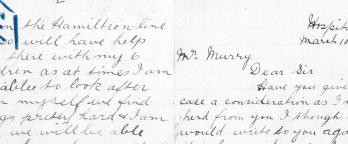 on the Hamilton line
so will have help
there with my 6
dren as at times I am
able to look after
myself we find
gs pretty hard & I am
we will be able
Hospit
March 10
Mr Murry
Dear Sir
Have you give
case a consideration as I
herd from you I though
would write to you aga